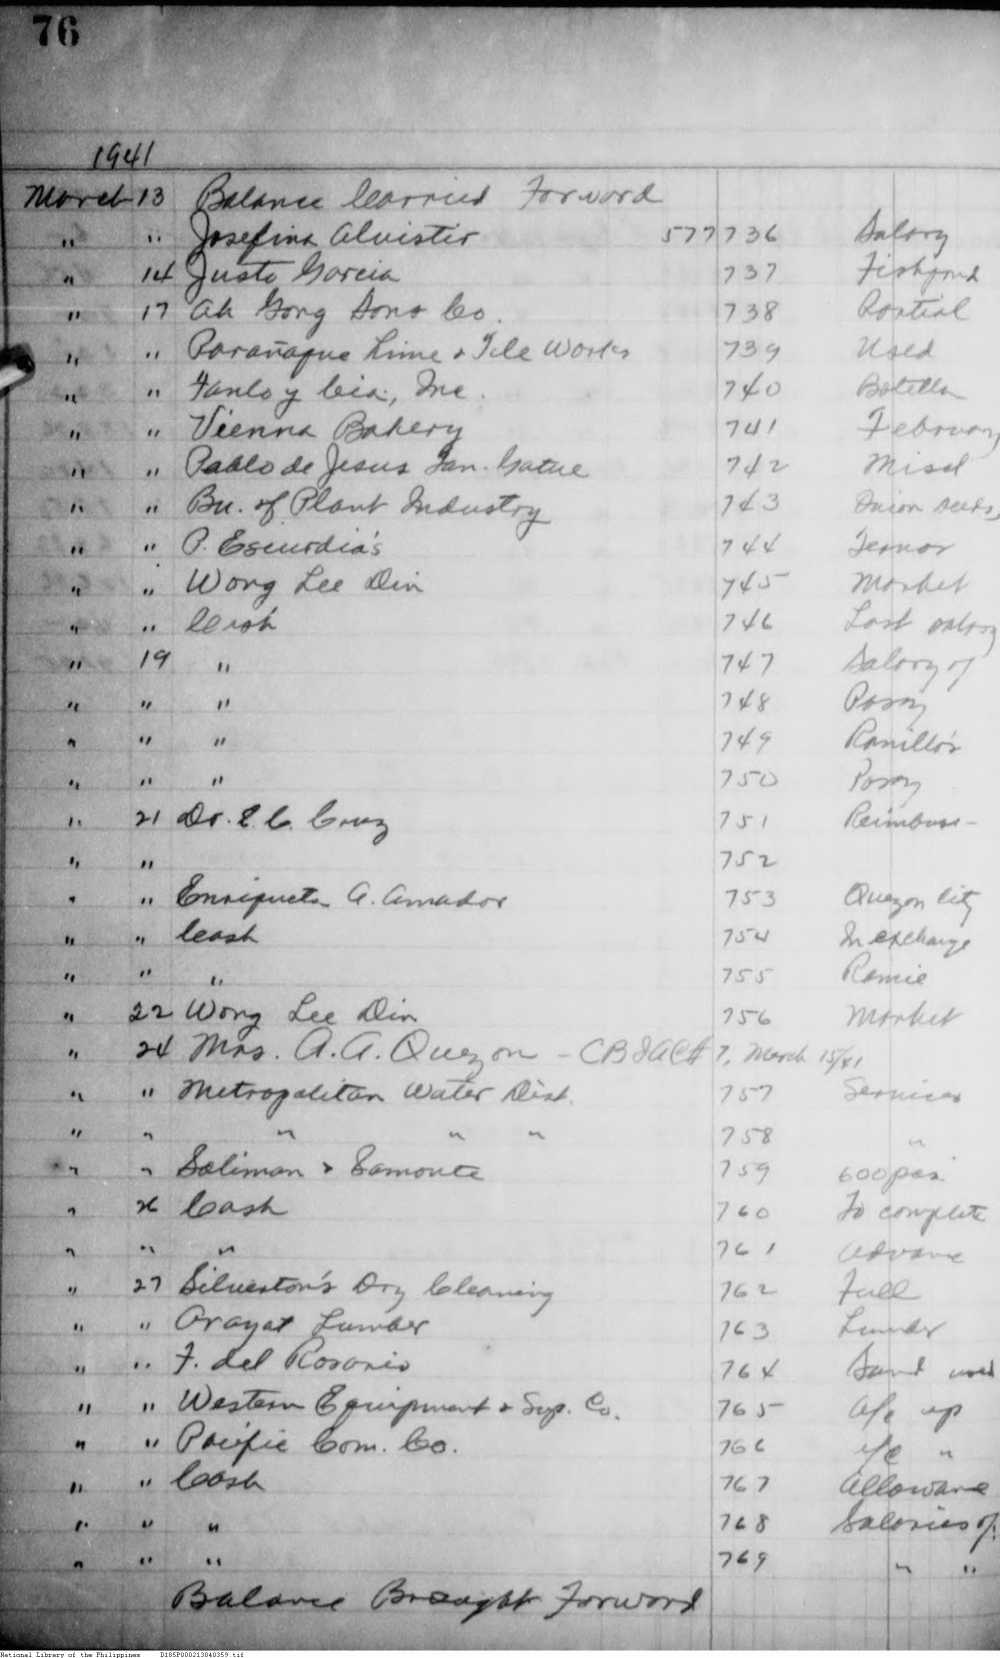 76
1941
March 13 Balance Carried Forward
" " Josefina Alvistir 577736 Salary
" 14 Justo Garcia 737 Fishpond
" 17 Ah Gong Sons Co. 738 Partial
" " Parañaque Lime & Tile Works 739 Used
" " Tanlo y Cia, Inc. 740 Botella
" " Vienna Bakery 741 February
" " Pablo de Jesus 742 Miscl
" " Bu. of Plant Industry 743 Onion seeds,
" " P. Escurdia's 744
" " Wong Lee Din 745 Market
" " Cash 746 Last salary
" 19 " 747 Salary of
" " " 748 Pasay
" " " 749 Ranillo's
" " " 750 Pasay
" 21 Dr. E. C. Cruz 751 Reimburse-
" " 752
" " Enriqueta A. Amador 753 Quezon City
" " Cash 754 In exchange
" " " 755 Ramie
" 22 Wong Lee Din 756 Market
" 24 Mrs. A. A. Quezon - CB & AC# 7, March 15/41
" " Metropolitan Water Dist. 757 Services
" " " " " 758 "
" " Soliman & 759 600 pcs.
" 26 Cash 760 To complete
" " " 761 Advance
" 27 Silverton's Dry Cleaning 762 Full
" " Arayat Lumber 763 Lumber
" " F. del Rosario 764 Sand used
" " Western Equipment & Sup. Co. 765 a/c up
" " Pacific Com. Co. 766 a/c "
" " Cash 767 Allowance
" " " 768 Salaries of
" " " 769 " "
Balance Brought Forward
National Library of the Philippines D185P000213040359.tif